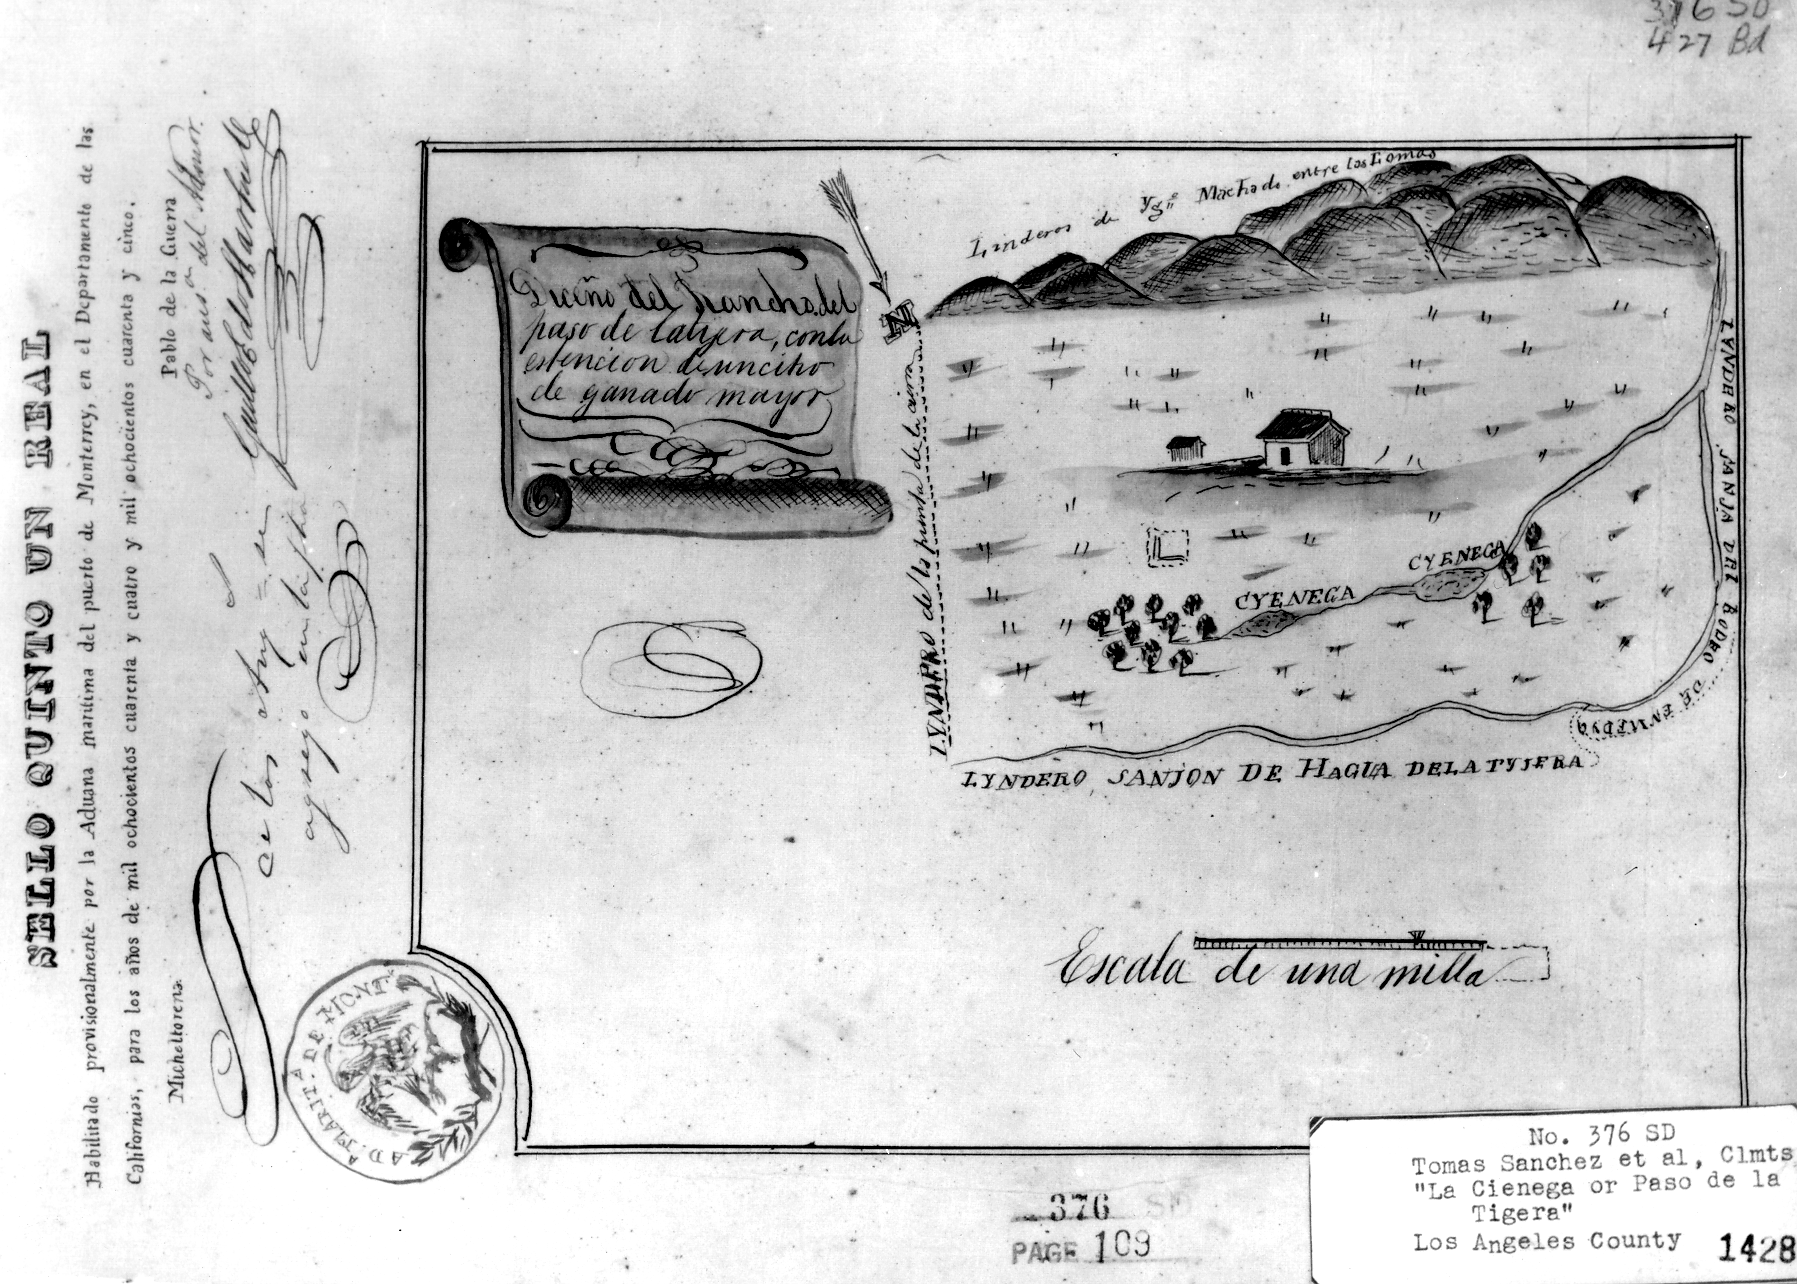 376 SD
427 Bd
SELLO QUINTO UN REAL
Habilitado provisionalmente por la Aduana maritima del puerto de Monterrey, en el Departamento de las
Californias, para los años de mil ochocientos cuarenta y cuatro y mil ochocientos cuarenta y cinco.
Micheltorena.
Pablo de la Guerra
Por aus.a del Admor.
AD.A MARIT.A DE MONT
Diceño del Rancho del
paso de latijera, conla
estencion de un citio
de ganado mayor
N
Linderos de Ygn.o Machado entre las Lomas
LYNDERO de la punta de la cierra
LYNDERO SANJA DEL RODEO
DE ENMEDYO
CYENEGA
CYENEGA
LYNDERO SANJON DE HAGUA DELATYJERA
Escala de una milla
376 SD
PAGE 109
No. 376 SD
Tomas Sanchez et al, Clmts
"La Cienega or Paso de la
Tigera"
Los Angeles County
1428